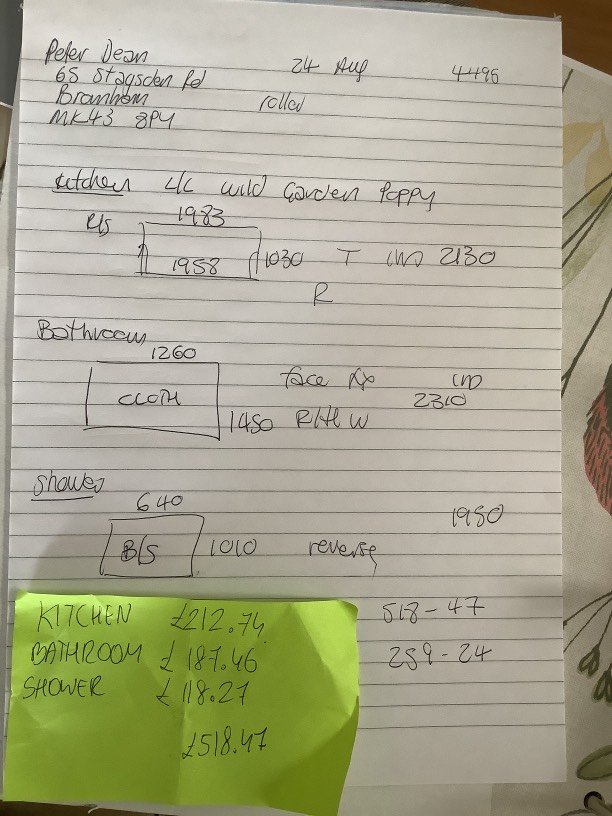 Peter Dean 24 Aug 4496
65 Stagsden Rd
Bromham rolled
MK43 8PY
Kitchen L/L Wild Garden Poppy
R/S 1983
1958 1030 T (W) 2130
R
Bathroom
1260
CLOTH face fix (W)
2310
1450 RHL W
Shower
640
1950
B/S 1010 reverse
KITCHEN £212.74
BATHROOM £187.46
SHOWER £118.27
£518.47
518-47
259-24